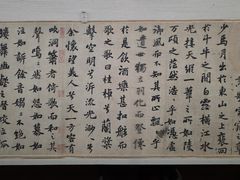 少焉月出於東山之上裴回
於斗牛之間白露橫江水
光接天縱一葦之所如陵
萬頃之茫然浩〻乎如憑虛
御風而不知其所止飄〻乎
如遺世獨立羽化而登僊
於是飲酒樂甚扣舷而
歌之歌曰桂棹兮蘭槳
擊空明兮泝流光渺〻兮
余懷望美人兮天一方客有
吹洞簫者倚歌而和之其
聲嗚〻然如怨如慕如
泣如訴餘音嫋〻不絕如
縷舞幽壑之潛蛟泣孤